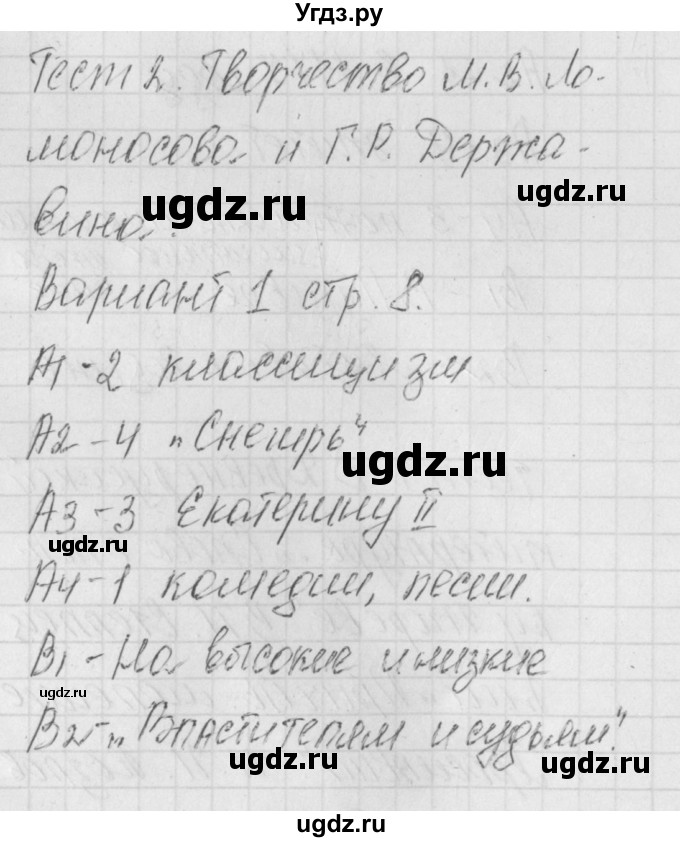 Угдз.ру
Тест 2. Творчество М.В. Ло-
моносова и Г.Р. Держа-
вина.
ugdz.ru
ugdz.ru
Вариант 1 стр. 8.
А1-2 классицизм
А2-4 „Снегирь"
ugdz.ru
А3-3 Екатерину II
ugdz.ru
А4-1 комедии, песни.
В1-На высокие и низкие
ugdz.ru
В2-„Властителям и судьям".
ugdz.ru
ugdz.ru
ugdz.ru